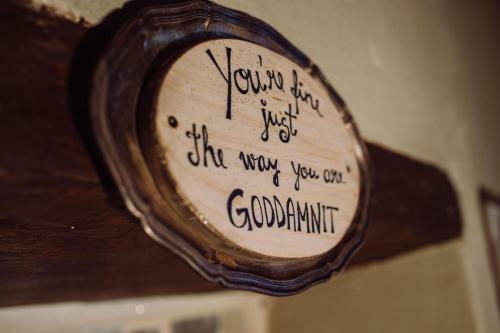 You're fine
just
the way you are
GODDAMNIT